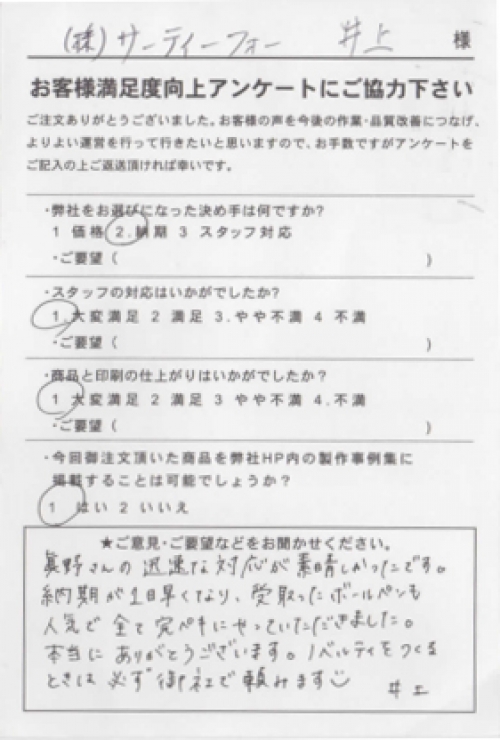 (株) サーティーフォー 井上 様
お客様満足度向上アンケートにご協力下さい
ご注文ありがとうございました。お客様の声を今後の作業・品質改善につなげ、
よりよい運営を行って行きたいと思いますので、お手数ですがアンケートを
ご記入の上ご返送頂ければ幸いです。
・弊社をお選びになった決め手は何ですか?
1 価格 2.納期 3 スタッフ対応
・ご要望 ( )
・スタッフの対応はいかがでしたか?
1.大変満足 2 満足 3.やや不満 4 不満
・ご要望 ( )
・商品と印刷の仕上がりはいかがでしたか?
1 大変満足 2 満足 3 やや不満 4.不満
・ご要望 ( )
・今回御注文頂いた商品を弊社HP内の製作事例集に
掲載することは可能でしょうか?
1 はい 2 いいえ
★ご意見・ご要望などをお聞かせください。
眞野さんの迅速な対応が素晴しかったです。
納期が1日早くなり、受取ったボールペンも
人気で全て完ペキにやっていただきました。
本当にありがとうございます。ノベルティをつくる
ときは必ず御社で頼みます
井上